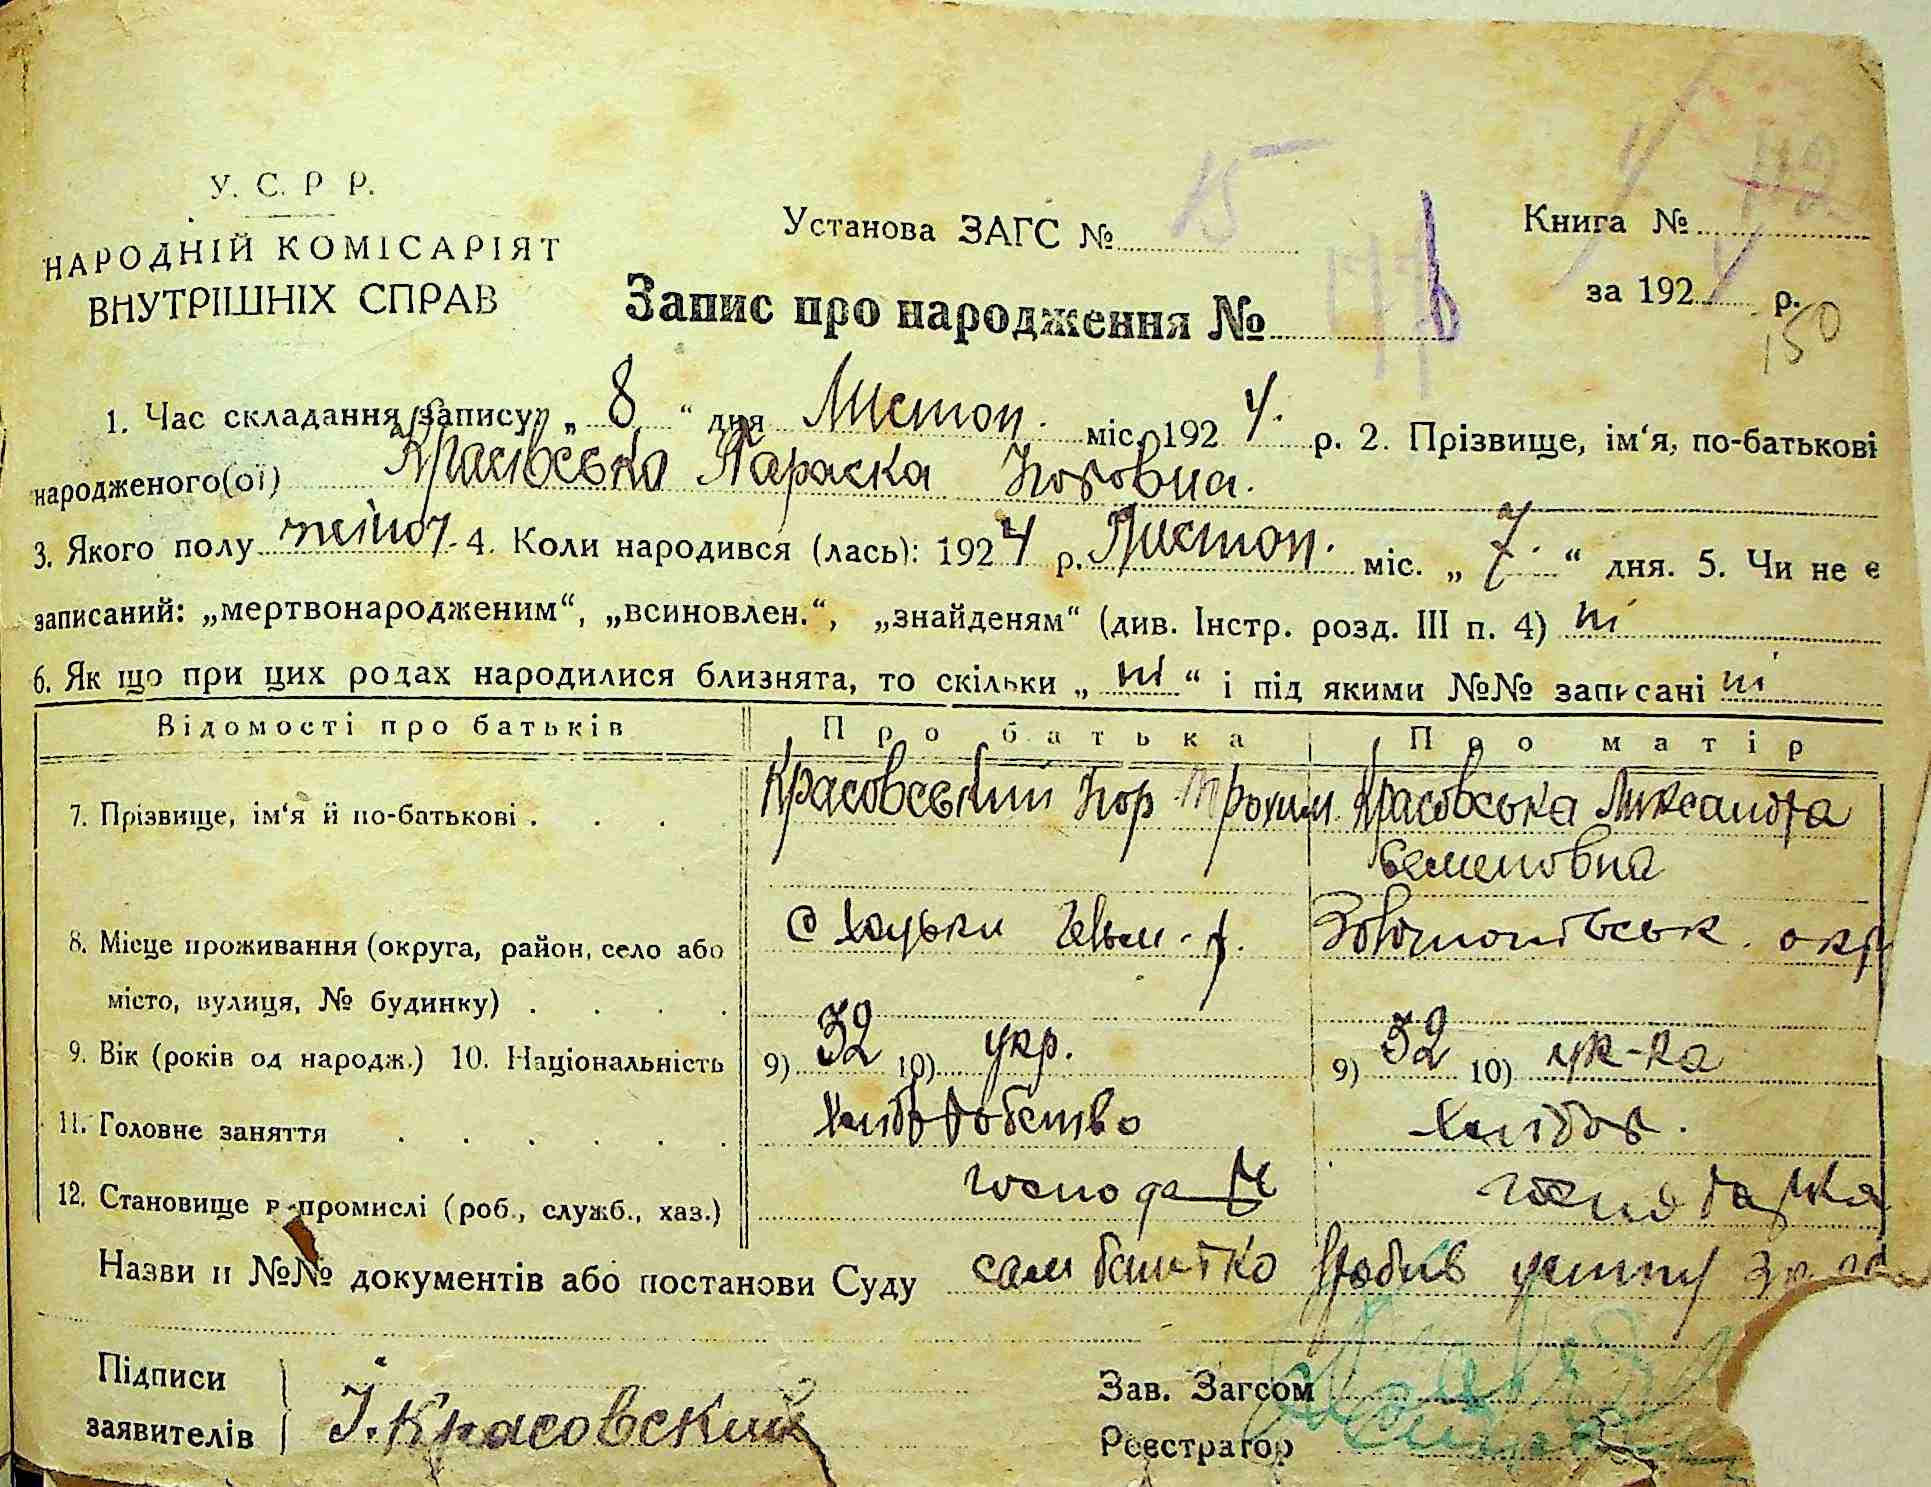 У. С. Р Р.
НАРОДНІЙ КОМІСАРІЯТ
ВНУТРІШНІХ СПРАВ
Установа ЗАГС № 15
Книга №
Запис про народження №
за 1924 р.
150
1. Час складання запису „ 8 “ дня Листоп. міс. 1924. р. 2. Прізвище, ім‘я, по-батькові
народженого(ої) Красовська Параска
3. Якого полу жіноч. 4. Коли народився (лась): 1924 р. Листоп. міс. „ 7. “ дня. 5. Чи не є
записаний: „мертвонародженим“, „всиновлен.“, „знайденям“ (див. Інстр. розд. III п. 4) ні
6. Як що при цих родах народилися близнята, то скільки „ ні “ і під якими №№ записані ні
Відомості про батьків Про батька Про матір
7. Прізвище, ім‘я й по-батькові . . . . Красовський Трохим. Красовська Ликсандра
Семеновна
8. Місце проживання (округа, район, село або с Хацьки р. окр
місто, вулиця, № будинку) . . . .
9. Вік (років од народж.) 10. Національність 9) 32 10) укр. 9) 32 10) ук-ка
11. Головне заняття . . . . . . Хлібор.
12. Становище в промислі (роб., служб., хаз.) господар господарка
Назви й №№ документів або постанови Суду сам батько зробив устну
Підписи
заявителів І. Красовский
Зав. Загсом
Реєстратор